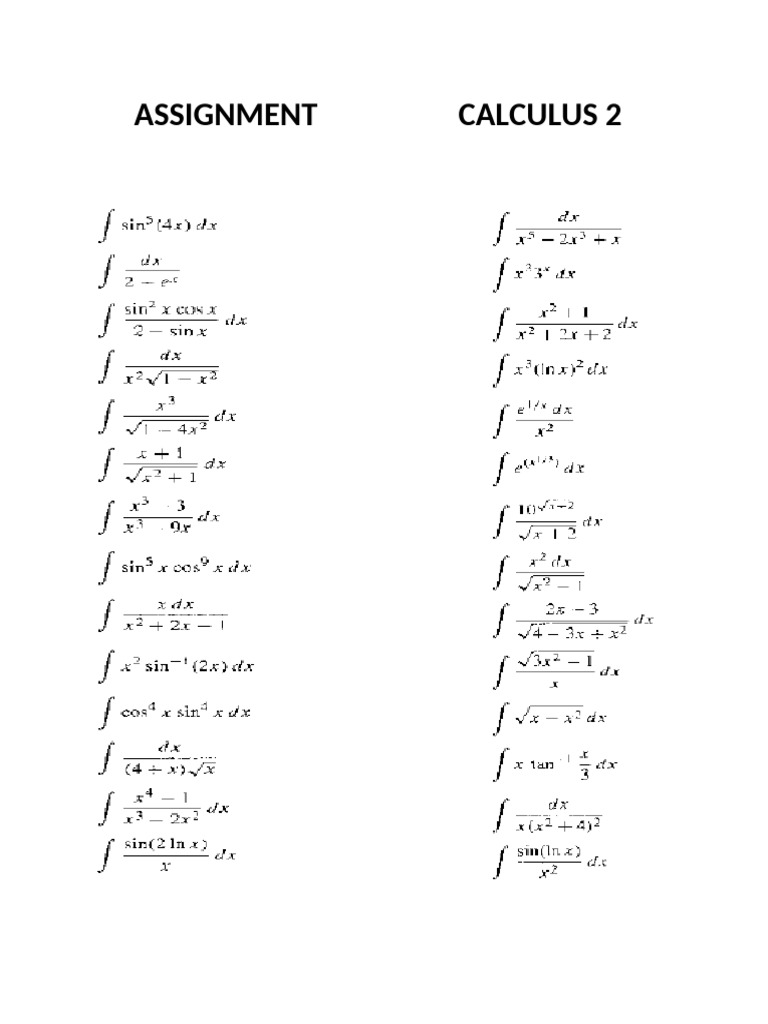 ASSIGNMENT CALCULUS 2
∫ sin⁵(4x) dx
∫ dx / (2 − eˣ)
∫ (sin² x cos x) / (2 − sin x) dx
∫ dx / (x²√(1 − x²))
∫ x³ / √(1 − 4x²) dx
∫ (x + 1) / √(x² + 1) dx
∫ (x³ − 3) / (x³ − 9x) dx
∫ sin⁵ x cos⁹ x dx
∫ x dx / (x² + 2x − 1)
∫ x² sin⁻¹(2x) dx
∫ cos⁴ x sin⁴ x dx
∫ dx / ((4 + x)√x)
∫ (x⁴ − 1) / (x³ − 2x²) dx
∫ sin(2 ln x) / x dx
∫ dx / (x⁵ − 2x³ + x)
∫ x²3ˣ dx
∫ (x² + 1) / (x² + 2x + 2) dx
∫ x³(ln x)² dx
∫ e^(1/x) dx / x²
∫ dx
∫ 10^√(x+2) / √(x + 2) dx
∫ x² dx / √(x² − 1)
∫ (2x − 3) / √(4 − 3x + x²) dx
∫ √(3x² − 1) / x dx
∫ √(x − x²) dx
∫ x tan⁻¹ (x/3) dx
∫ dx / (x(x² + 4)²)
∫ sin(ln x) / x² dx